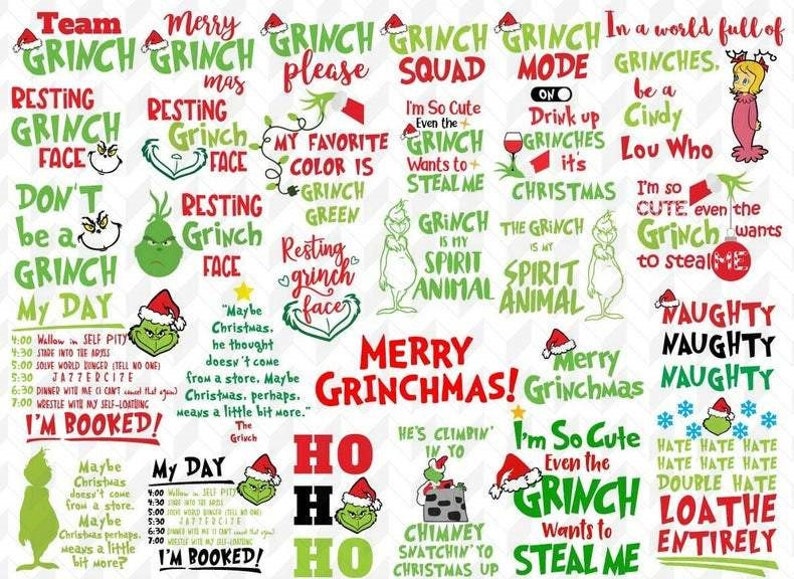 Team
GRINCH
Merry
GRINCH
mas
GRINCH
please
GRINCH
SQUAD
GRINCH
MODE
ON
In a world full of
GRINCHES,
be a
Cindy
Lou Who
RESTING
GRINCH
FACE
RESTING
Grinch
FACE
MY FAVORITE
COLOR IS
GRINCH
GREEN
I'm So Cute
Even the
GRINCH
Wants to
STEAL ME
Drink up
GRINCHES
it's
CHRISTMAS
DON'T
be a
GRINCH
RESTING
Grinch
FACE
Resting
grinch
face
GRINCH
IS MY
SPIRIT
ANIMAL
THE GRINCH
IS MY
SPIRIT
ANIMAL
I'm so
CUTE, even the
Grinch wants
to steal ME
My DAY
4:00 Wallow in SELF PITY
4:30 STARE INTO THE ABYSS
5:00 SOLVE WORLD HUNGER (TELL NO ONE)
5:30 JAZZERCIZE
6:30 DINNER WITH ME (I CAN'T cancel that again)
7:00 WRESTLE WITH MY SELF-LOATHING
I'M BOOKED!
"Maybe
Christmas,
he thought
doesn't come
from a store. Maybe
Christmas, perhaps,
means a little bit more."
The
Grinch
MERRY
GRINCHMAS!
Merry
Grinchmas
NAUGHTY
NAUGHTY
NAUGHTY
Maybe
Christmas
doesn't come
from a store.
Maybe
Christmas perhaps,
means a little
bit more?
My DAY
4:00 Wallow in SELF PITY
4:30 STARE INTO THE ABYSS
5:00 SOLVE WORLD HUNGER (TELL NO ONE)
5:30 JAZZERCIZE
6:30 DINNER WITH ME (I CAN'T cancel that again)
7:00 WRESTLE WITH MY SELF-LOATHING
I'M BOOKED!
HO
HO
HO
HE'S CLIMBIN'
IN YO
CHIMNEY
SNATCHIN' YO
CHRISTMAS UP
I'm So Cute
Even the
GRINCH
Wants to
STEAL ME
HATE HATE HATE
HATE HATE HATE
DOUBLE HATE
LOATHE
ENTIRELY